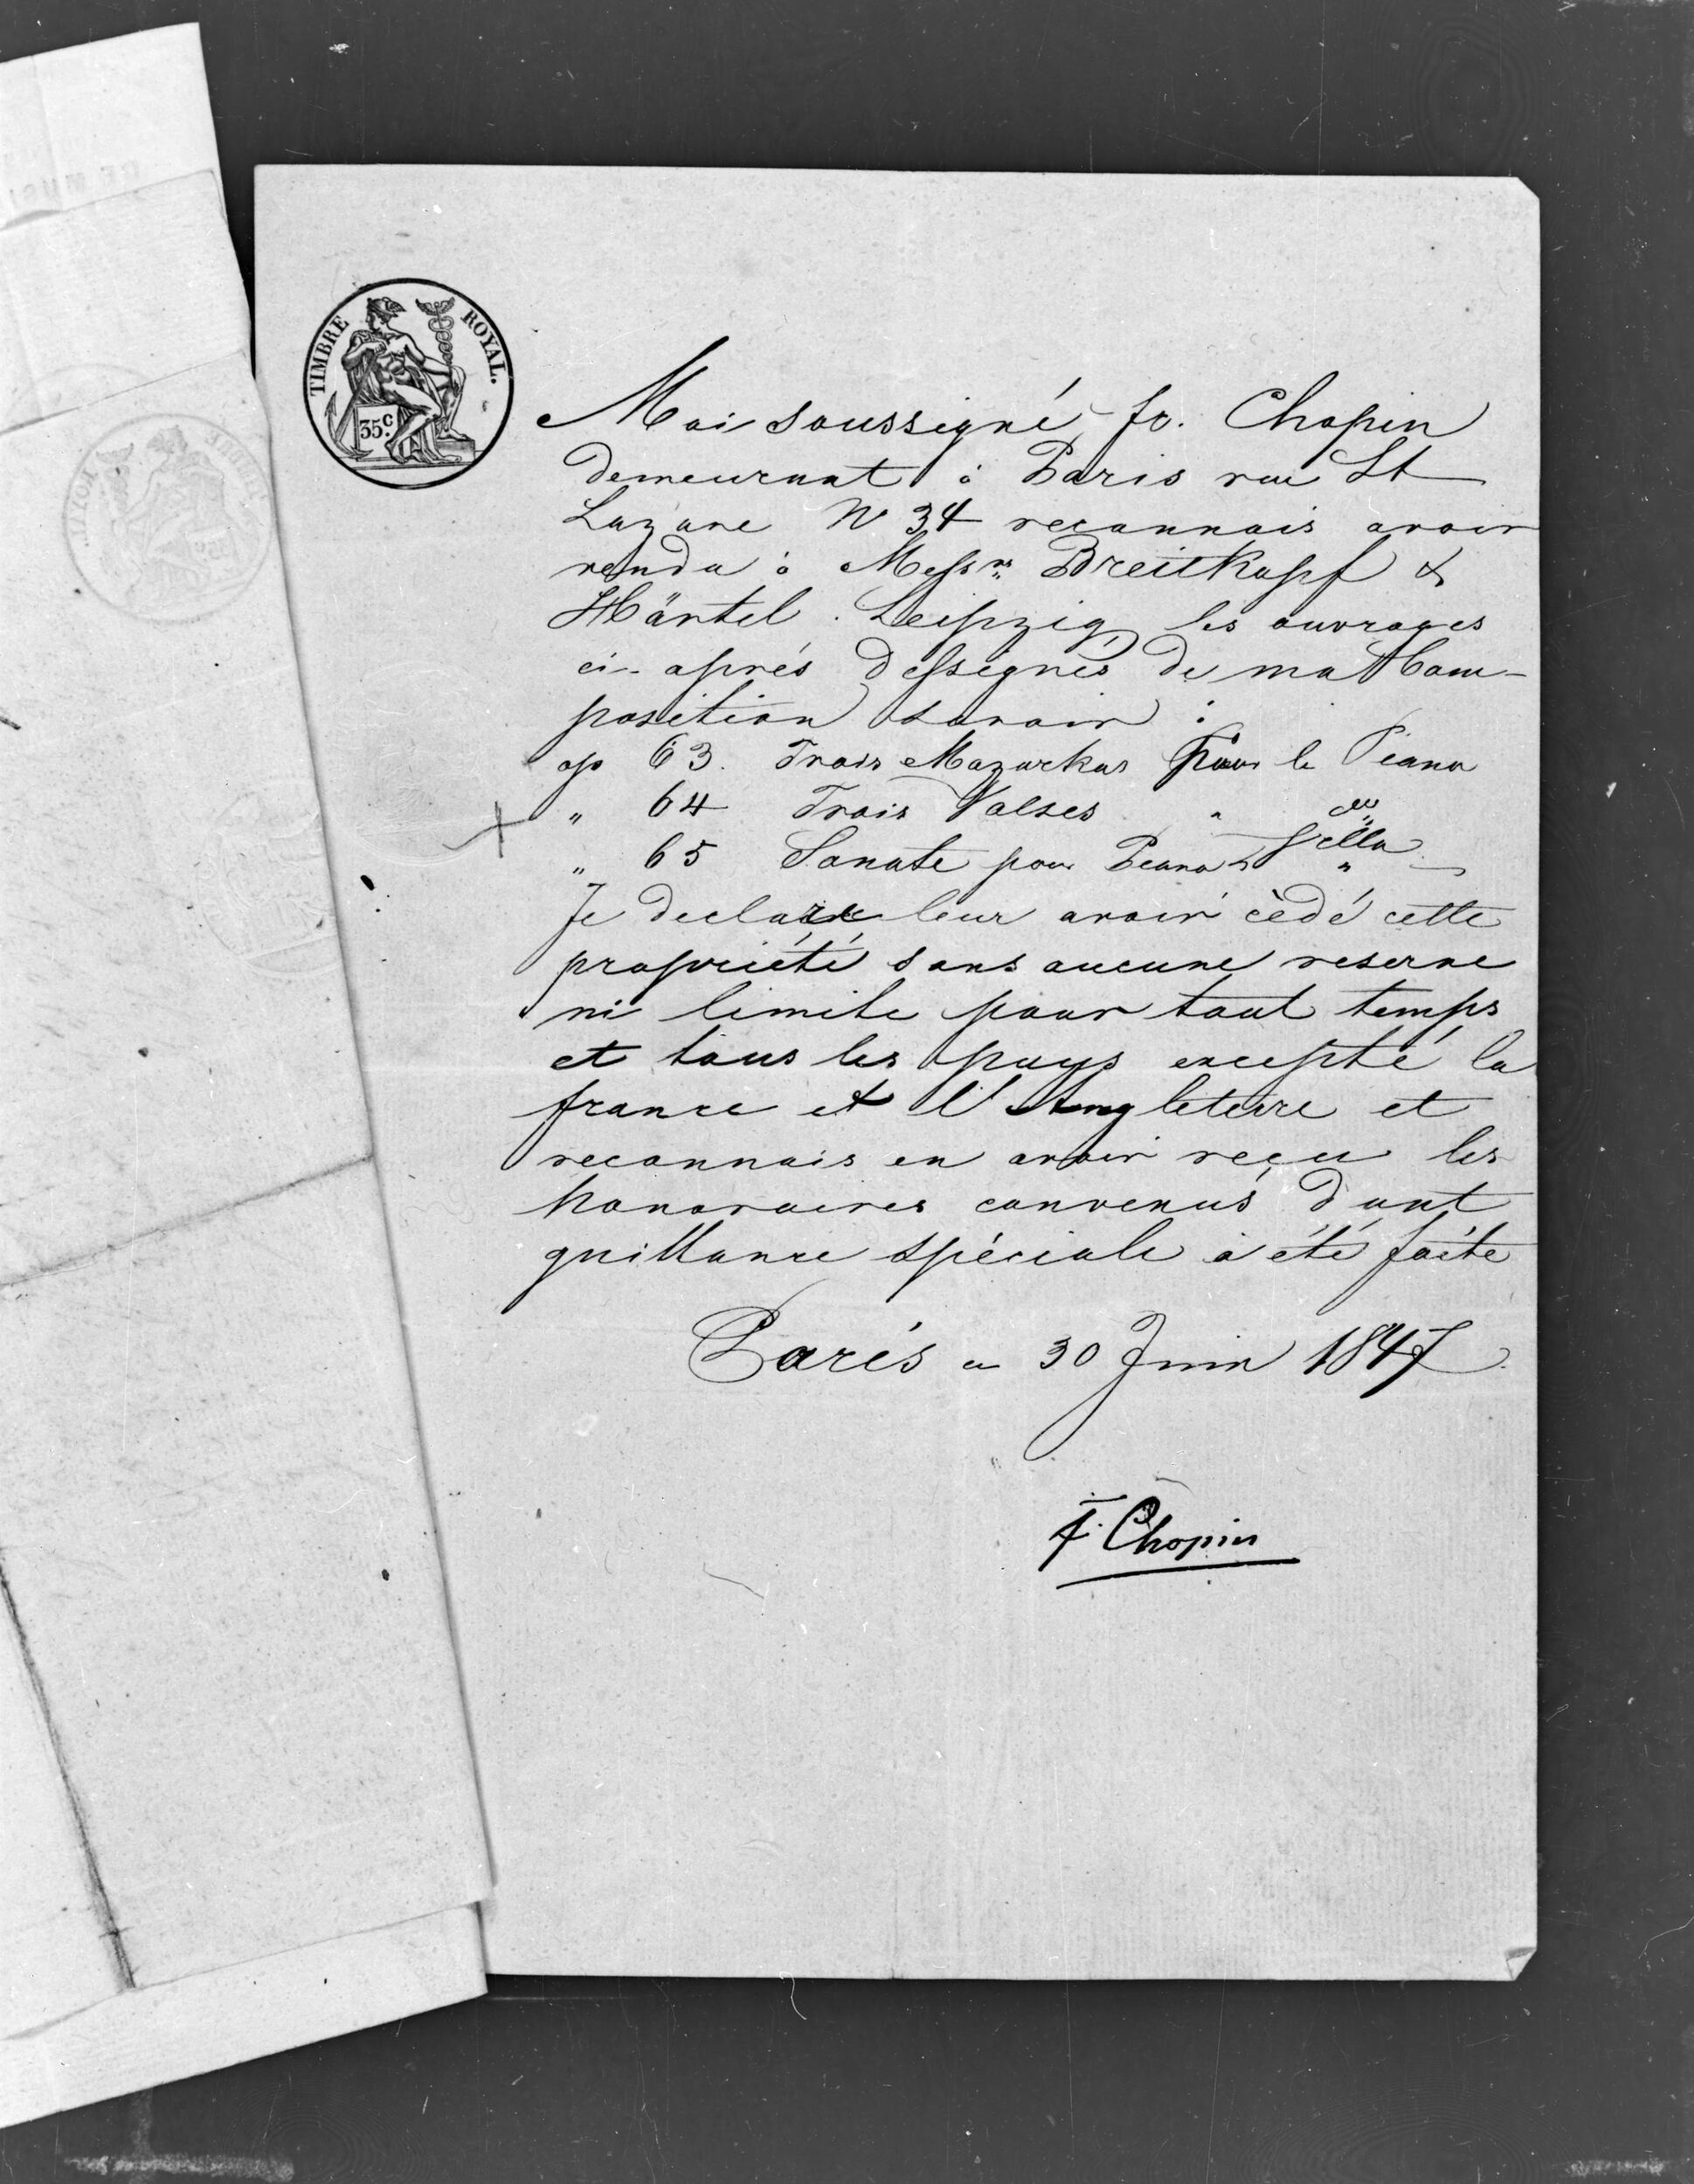 TIMBRE ROYAL.
35c.
Moi soussigné fr. Chopin
demeurant à Paris rue St
Lazare No 34 reconnais avoir
vendu à Messrs Breitkopf &
Härtel . Leipzig, les ouvrages
ci-après dessignés de ma Com-
position savoir :
op 63. Trois Mazurkas pour le Piano
" 64 Trois Valses " "
" 65 Sonate pour Piano & Vclla
Je declare leur avoir cèdé cette
propriété sans aucune reserve
ni limite pour tout temps
et tous les pays excepté la
france et l'Angleterre et
reconnais en avoir reçu les
honoraires convenus dont
quittance spéciale à été faite
Paris ce 30 Juin 1847.
F. Chopin